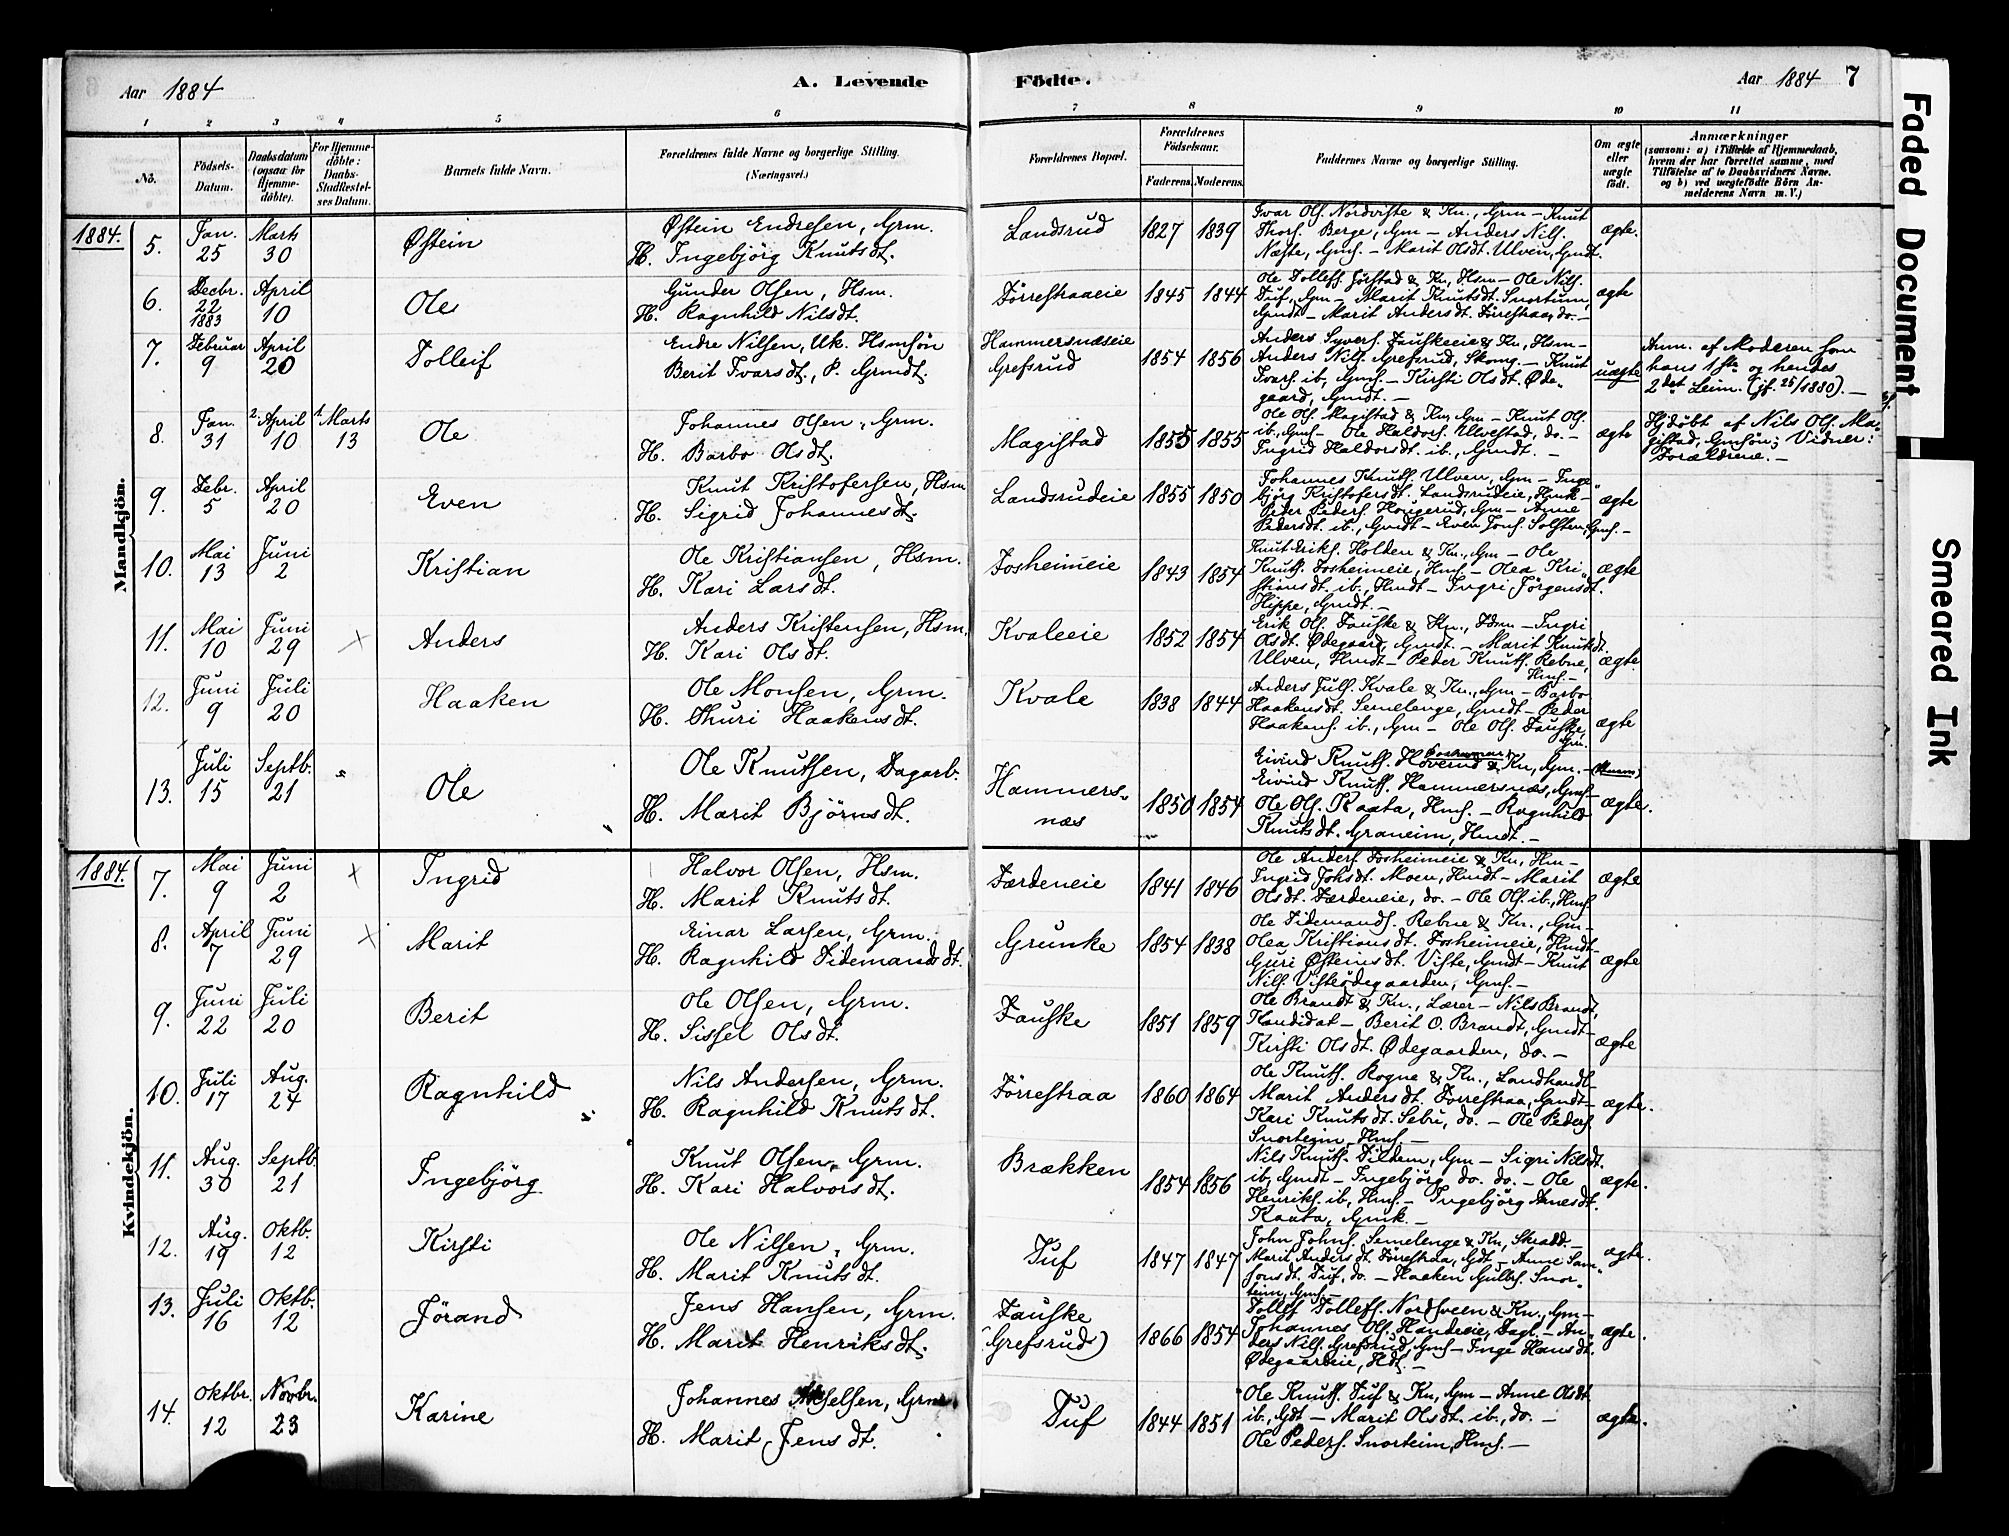 Aar 1884
A. Levende
Födte.
Aar 1884 7
1 2 3 4 5 6 7 8 9 10 11
No.
Födsels-Datum.
Daabsdatum (ogsaa for Hjemme-döbte).
For Hjemme-döbte: Daabs-Stadfæstel-ses Datum.
Barnets fulde Navn.
Forældrenes fulde Navne og borgerlige Stilling.
(Næringsvei.)
Forældrenes Bopæl.
Forældrenes Födselsaar.
Faderens. Moderens.
Faddernes Navne og borgerlige Stilling.
Om ægte eller uægte födt.
Anmærkninger
(saasom: a) i Tilfælde af Hjemmedaab, hvem der har forrettet samme, med Tilföielse af to Daabsvidners Navne. og b) ved uægtefödte Börn An-melderens Navn m. V.)
Mandkjön.
1884. 5. Jan. 25 Marts 30 Østein
Østein Endresen, Grm.
H. Ingebjörg Knutsdt.
Landsrud 1827 1839
Ivar Ols. Nordviste & Kn., Grm - Knut
Thors. Berge, Gm - Anders Nils.
Næste, Gms. - Marit Olsdt. Ulven, Gmdt.
ægte.
6. Decbr. 22 1883 April 10 Ole
Gunder Olsen, Hsm.
H. Ragnhild Nilsdt.
Törrestraaeie 1845 1844
Ole Tollefs. Jörstad & Kn, Hsm - Ole Nils.
Tuf, Gm - Marit Knutsdt. Snortum,
Gmdt - Marit Andersdt. Törrestraa, do. -
ægte
7. Februar 9 April 20 Tolleif
Endre Nilsen, Uk. Hsmsön
Berit Ivarsdt., P. Grmdt.
Hammersnæseie
Grefsrud 1854 1856
Anders Syvers. Fauskeeie & Kn, Hsm -
Anders Nils. Grefsrud, Skomg. - Knut
Ivars. ib, Gms. - Kirsti Olsdt. Øde-
gaard, Gmdt. -
uægte
Anm. af Moderen som
hans 1ste og hendes
2det Leierm. (jf. 25/1880). -
8. Jan. 31 2. April 10 1. Marts 13 Ole
Johannes Olsen, Grm.
H. Barbo Olsdt.
Magistad 1855 1855
Ole Ols. Magistad & Kn, Gm - Knut Ols.
ib., Gms - Ole Haldors. Ulvestad, do. -
Ingrid Haldorsdt. ib., Gmdt. -
ægte
Hjdöbt af Nils Ols. Ma-
gistad, Gmsön; Vidner:
Forældrene. -
9. Febr. 5 April 20 Even
Knut Kristofersen, Hsm
H. Sigrid Johannesdt.
Landsrudeie 1855 1850
Johannes Knuts. Ulven, Gm - Inge-
björg Kristofersdt. Landsrudeie, Hmk -
Peder Peders. Haugerud, Gm - Anne
Pedersdt. ib., Gmdt - Even Jons. Solsten, Gms. -
ægte
10. Mai 13 Juni 2 Kristian
Ole Kristiansen, Hsm.
H. Kari Larsdt.
Fosheimeie 1843 1854
Knut Eriks. Holden & Kn., Gm - Ole
Knuts. Fosheimeie, Hms. - Olea Kri-
stiansdt. ib., Hmdt - Ingri Jörgensdt.
Hippe, Gmdt. -
ægte
11. Mai 10 Juni 29 × Anders
Anders Kristensen, Hsm.
H. Kari Olsdt.
Kvaleeie 1852 1854
Erik Ols. Fauske & Kn., - Ingri
Olsdt. Ødegaard, Gmdt. - Marit Knutsdt.
Ulven, Hmdt - Peder Knuts. Rebne,
Hms. -
ægte
12. Juni 9 Juli 20 Haaken
Ole Monsen, Grm.
H. Thuri Haakensdt.
Kvale 1838 1844
Anders Juls. Kvale & Kn., Gm - Barbo
Haakensdt. Semelenge, Gmdt - Peder
Haakens. ib., Gm - Ole Ols. Fauske,
Gm.
ægte
13. Juli 15 Septb. 21 Ole
Ole Knutsen, Dagarb.
H. Marit Björnsdt.
Hammers-
næs 1850 1854
Eivind Knuts. Haverud & Kn, Gm. -
Eivind Knuts. Hammersnæs, Gms -
Ole Ols. Kaata, Hms. - Ragnhild
Knutsdt. Graneim, Hmdt. -
ægte.
Kvindekjön.
1884. 7. Mai 9 Juni 2 × Ingrid
Halvor Olsen, Hsm.
H. Marit Knutsdt.
Færdeneie 1841 1846
Ole Anders. Fosheimeie & Kn, Hm -
Ingrid Johsdt. Moen, Hmdt - Marit
Olsdt. Færdeneie, do. - Ole Ols. ib., Hms
ægte
8. April 7 Juni 29 × Marit
Einar Larsen, Grm.
H. Ragnhild Tidemandsdt.
Grunke 1854 1838
Ole Tidemands. Rebne & Kn., Gm -
Olea Kristiansdt. Fosheimeie, Hmdt -
Guri Østeinsdt. Viste, Gmdt - Knut
Nils. Visteødegaarden, Gms. -
ægte
9. Juni 22 Juli 20 Berit
Ole Olsen, Grm.
H. Sissel Olsdt.
Fauske 1851 1859
Ole Brandt & Kn., Lærer - Nils Brandt,
Kandidat - Berit O. Brandt, Gmdt -
Kirsti Olsdt. Ødegaarden, do. -
ægte
10. Juli 17 Aug. 24 Ragnhild
Nils Andersen, Grm.
H. Ragnhild Knutsdt.
Törrestraa 1860 1864
Ole Knuts. Rogne & Kn., Landhandl -
Marit Andersdt. Törrestraa, Gmdt -
Kari Knutsdt. Sebu, do. - Ole Peders.
Snorteim, Hms. -
ægte.
11. Aug. 30 Septb. 21 Ingebjörg
Knut Olsen, Grm.
H. Kari Halvorsdt.
Brækken 1854 1856
Nils Knuts. Fildem, Gm - Sigri Nilsdt.
ib, Gmdt - Ingebjörg do. do. - Ole
Henriks. ib, Hms. - Ingebjörg Arnesdt.
Kaata, Gmk. -
ægte.
12. Aug. 19 Oktb. 12 Kirsti
Ole Nilsen, Grm.
H. Marit Knutsdt.
Tuf 1847 1847
John Johns. Semelenge & Kn, Skradd. -
Marit Andersdt. Törrestraa, Gdt - Anne Sam-
sonsdt. Tuf, do. - Haaken Gulbs. Snor-
teim, Gms. -
ægte.
13. Juli 16 Oktb. 12 Jörand
Jens Hansen, Grm.
H. Marit Henriksdt.
Fauske
(Grefsrud) 1866 1854
Tollef Tollefs. Nordsveen & Kn, Gm -
Johannes Ols. Handeeie, Dagl. - An-
ders Nils. Grefsrud, Gms - Inge Hansdt.
Ødegaardeie, Hdt. -
ægte.
14. Oktbr. 12 Novbr. 23 Karine
Johannes Akselsen, Grm
H. Marit Jensdt.
Tuf 1844 1851
Ole Knuts. Tuf & Kn, Gm - Anne Olsdt.
ib., Gdt - Marit Olsdt. ib., do. -
Ole Peders. Snorteim, Hms. -
ægte.
Faded Document
Smeared Ink